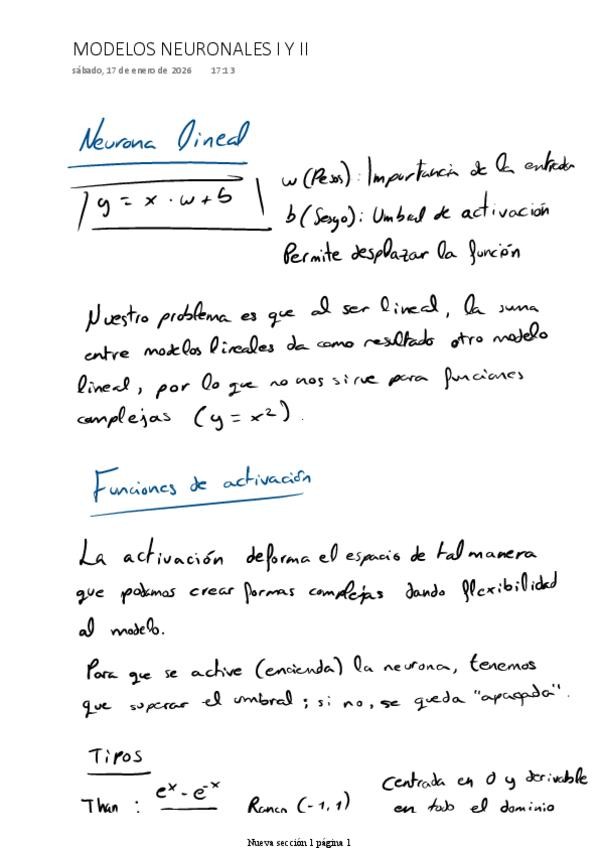 MODELOS NEURONALES I Y II
sábado, 17 de enero de 2026 17:13
Neurona lineal
y = x · w + b
w (Pesos): Importancia de la entrada
b (Sesgo): Umbral de activación
Permite desplazar la función
Nuestro problema es que al ser lineal, la suma
entre modelos lineales da como resultado otro modelo
lineal, por lo que no nos sirve para funciones
complejas (y = x²).
Funciones de activación
La activación deforma el espacio de tal manera
que podamos crear formas complejas dando flexibilidad
al modelo.
Para que se active (encienda) la neurona, tenemos
que superar el umbral; si no, se queda "apagada".
Tipos
Than: eˣ - e⁻ˣ (-1, 1) Centrada en 0 y derivable
en todo el dominio
Nueva sección 1 página 1